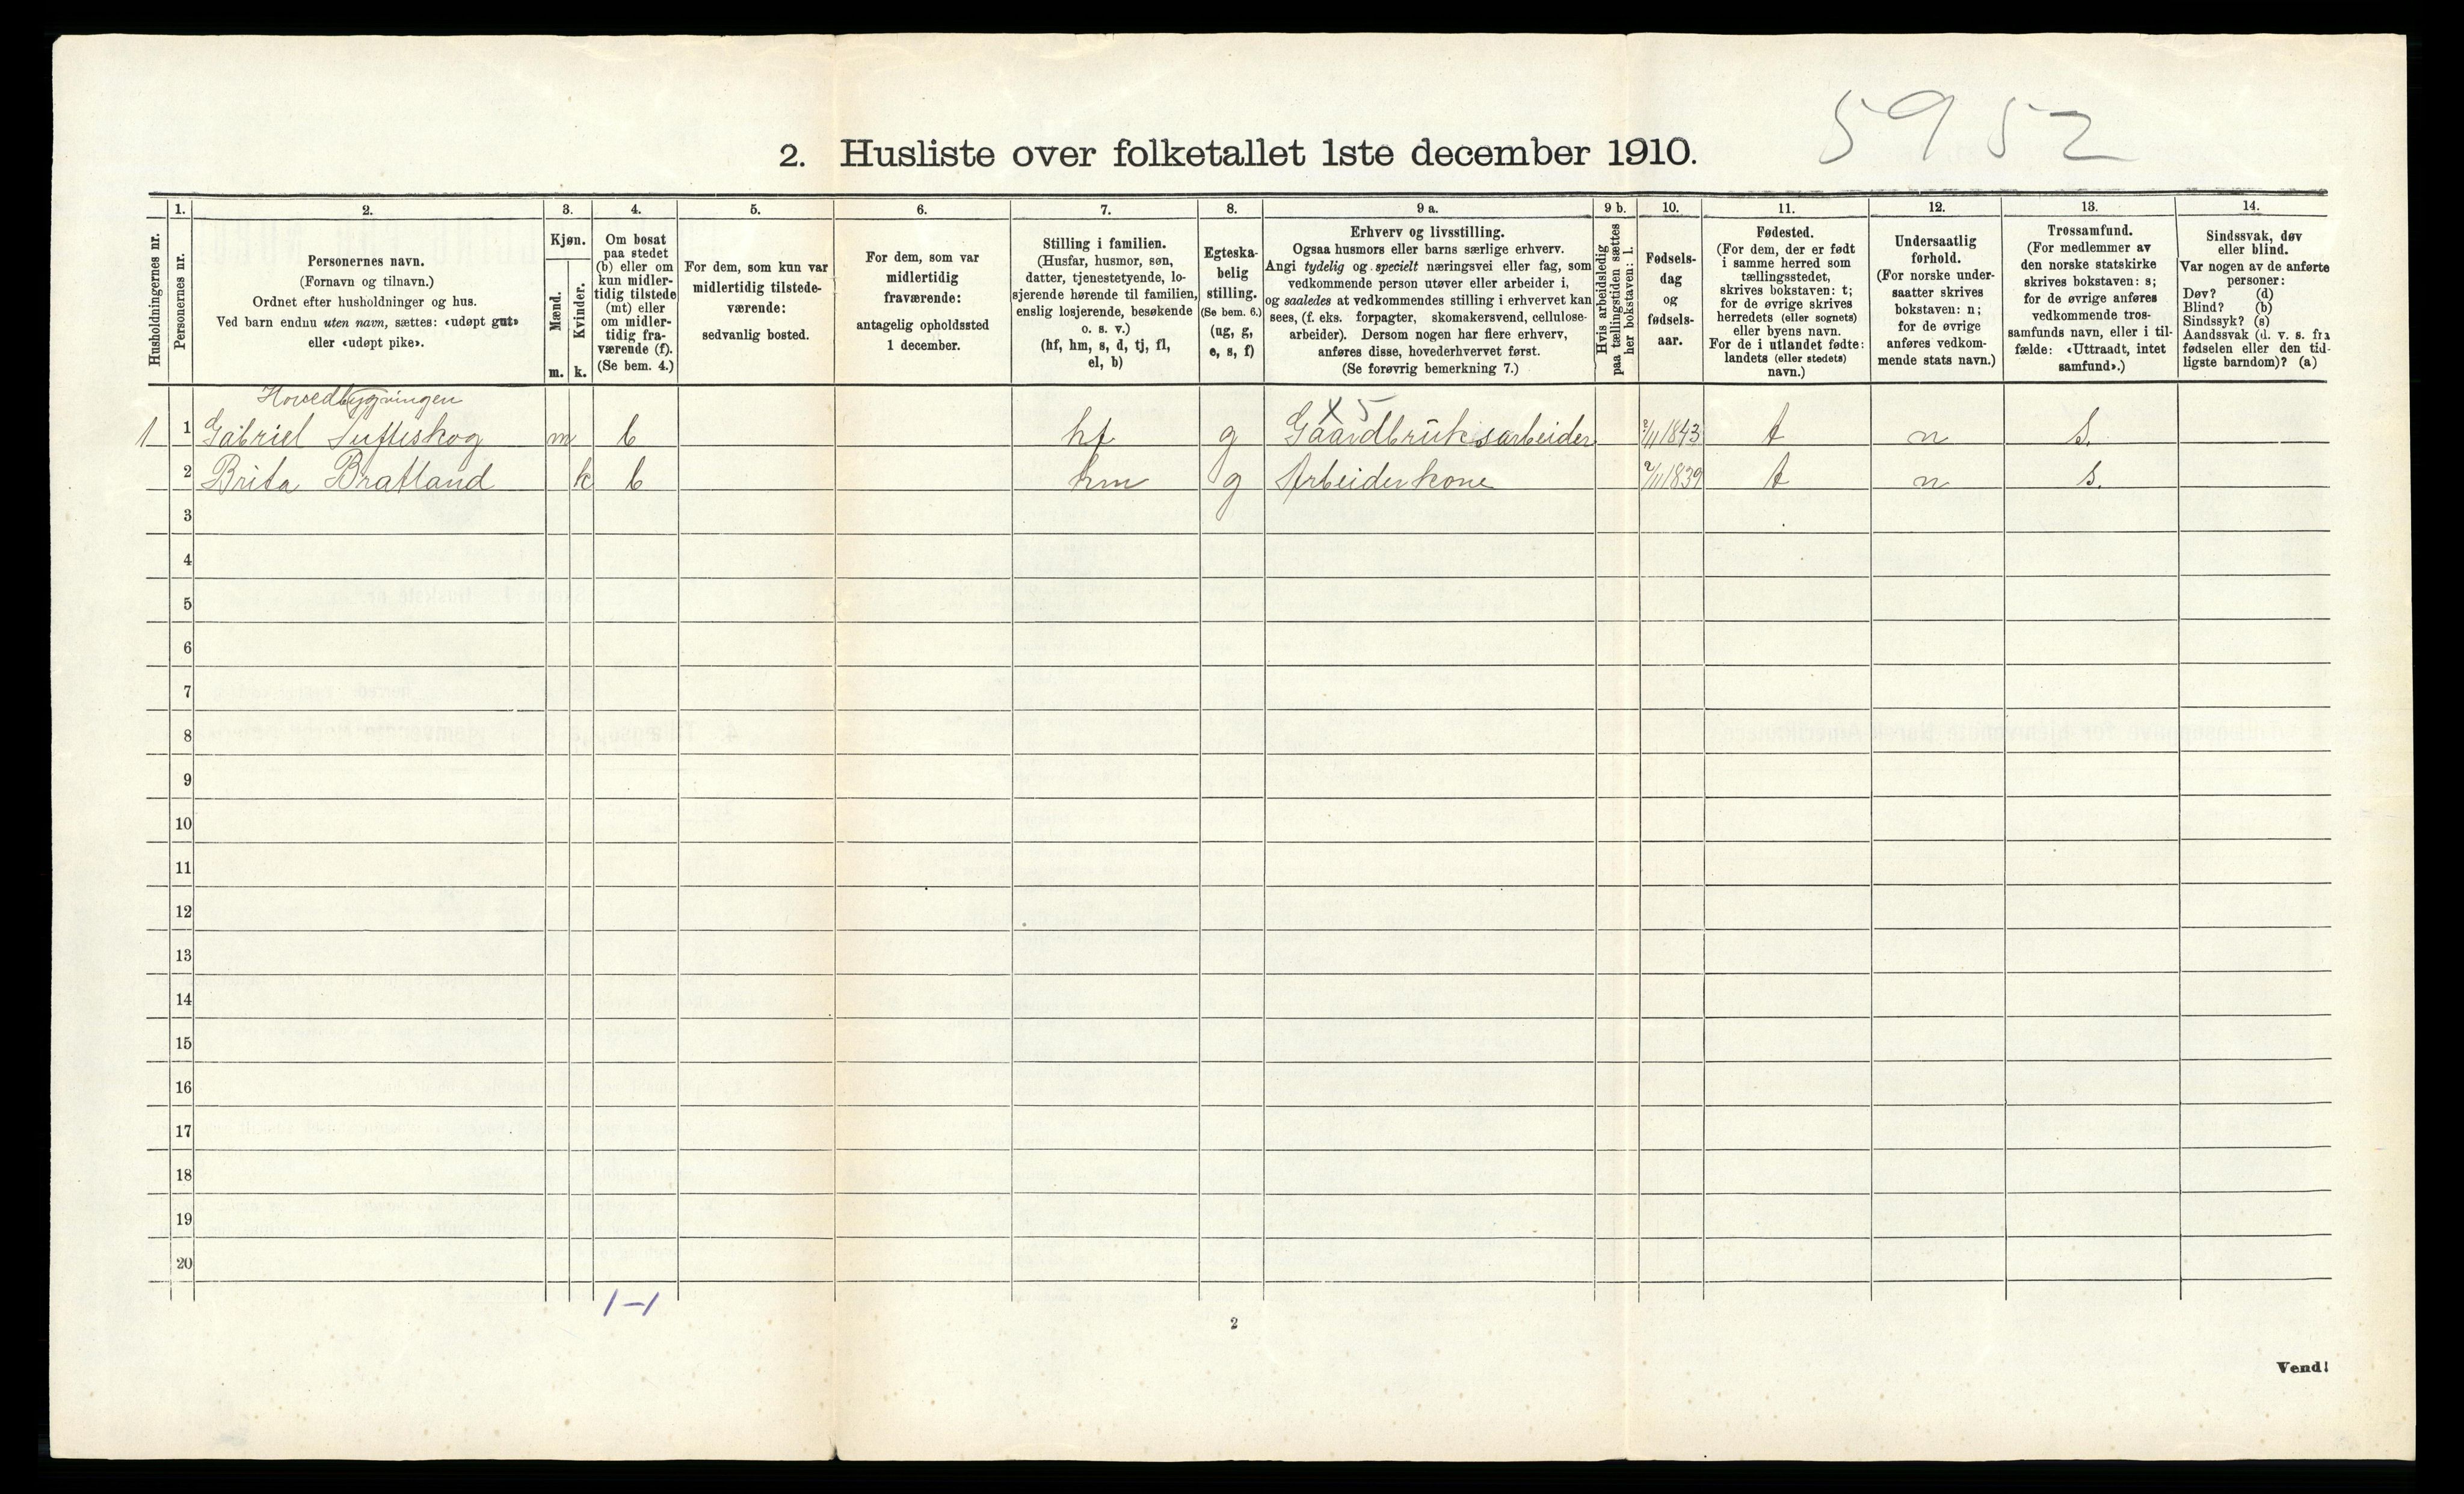 5952
2. Husliste over folketallet 1ste december 1910.
Husholdningernes nr.
1.
Personernes nr.
2.
Personernes navn.
(Fornavn og tilnavn.)
Ordnet efter husholdninger og hus.
Ved barn endnu uten navn, sættes: «udøpt gut»
eller «udøpt pike».
3.
Kjøn.
Mænd.
Kvinder.
m. k.
4.
Om bosat
paa stedet
(b) eller om
kun midler-
tidig tilstede
(mt) eller
om midler-
tidig fra-
værende (f).
(Se bem. 4.)
5.
For dem, som kun var
midlertidig tilstede-
værende:
sedvanlig bosted.
6.
For dem, som var
midlertidig
fraværende:
antagelig opholdssted
1 december.
7.
Stilling i familien.
(Husfar, husmor, søn,
datter, tjenestetyende, lo-
sjerende hørende til familien,
enslig losjerende, besøkende
o. s. v.)
(hf, hm, s, d, tj, fl,
el, b)
8.
Egteska-
belig
stilling.
(Se bem. 6.)
(ug, g,
e, s, f)
9 a.
Erhverv og livsstilling.
Ogsaa husmors eller barns særlige erhverv.
Angi tydelig og specielt næringsvei eller fag, som
vedkommende person utøver eller arbeider i,
og saaledes at vedkommendes stilling i erhvervet kan
sees, (f. eks. forpagter, skomakersvend, cellulose-
arbeider). Dersom nogen har flere erhverv,
anføres disse, hovederhvervet først.
(Se forøvrig bemerkning 7.)
9 b.
Hvis arbeidsledig
paa tællingstiden sættes
her bokstaven: l.
10.
Fødsels-
dag
og
fødsels-
aar.
11.
Fødested.
(For dem, der er født
i samme herred som
tællingsstedet,
skrives bokstaven: t;
for de øvrige skrives
herredets (eller sognets)
eller byens navn.
For de i utlandet fødte:
landets (eller stedets)
navn.)
12.
Undersaatlig
forhold.
(For norske under-
saatter skrives
bokstaven: n;
for de øvrige
anføres vedkom-
mende stats navn.)
13.
Trossamfund.
(For medlemmer av
den norske statskirke
skrives bokstaven: s;
for de øvrige anføres
vedkommende tros-
samfunds navn, eller i til-
fælde: «Uttraadt, intet
samfund».)
14.
Sindssvak, døv
eller blind.
Var nogen av de anførte
personer:
Døv? (d)
Blind? (b)
Sindssyk? (s)
Aandssvak (d. v. s. fra
fødselen eller den tid-
ligste barndom)? (a)
Hovedbygningen
x 5
1 1 Gabriel m b hf g Gaardbruksarbeider 1843 t n s.
2 Brita Bratland k b hm g Arbeiderkone 2/11 1839 t n s.
3
4
5
6
7
8
9
10
11
12
13
14
15
16
17
18
19
20
1-1
2
Vend!